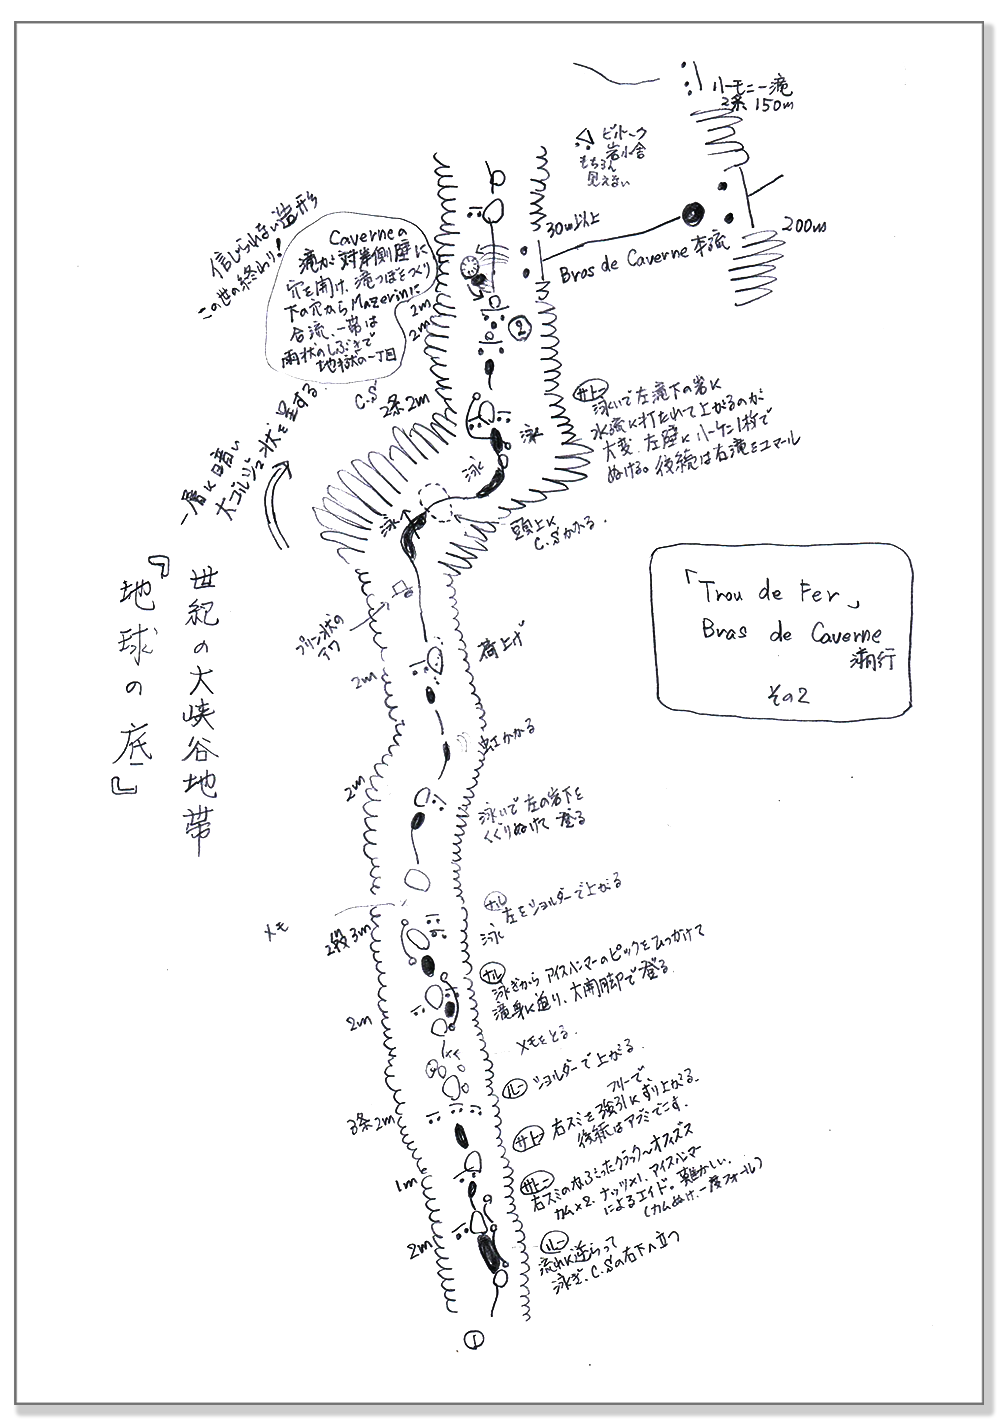 ハーモニー滝
2条 150m
ビバーク
岩小舎
もちろん
見えない
30m以上
200m
Bras de Caverne 本流
信じられない造形
この世の終わり!
Caverneの
滝が対岸側壁に
穴を開け、滝つぼをつくり
下の穴からMazerinに
合流、一帯は
雨状のしぶきで
地獄の一丁目
2m
2m
②
C.S
2条 2m
一層K暗い
大ゴルジュ状を呈する
サトー
泳いで左滝下の岩K
水流K打たれて上がるのが
大変. 左壁Kハーケン1枚で
ぬける。後続は右滝をユマール
泳
泳
泳
頭上K
C.Sかかる.
世紀の大峡谷地帯
『地球の底』
「Trou de Fer」
Bras de Caverne
溯行
その2
プリン状の
荷上げ
2m
虹かかる
2m
泳いで左の岩下を
くぐりぬけて登る
ナル
左をショルダーで上がる
泳
メモ
2段3m
ナル
泳ぎから アイスハンマーのピックをひっかけて
滝身K迫り、大開脚で登る
2m
メモをとる.
ルー ショルダーで上がる.
3条2m
サトー 右スミをフリーで強引Kずり上がる.
後続はアブミでこす.
1m
サトー
右スミのかぶったクラック〜オフィズス
カム×2. ナッツ×1. アイスハンマー
によるエイド。難かしい.
(カムぬけ、一度フォール)
2m
ルー
流れK逆らって
泳ぎ、C.Sの右下へ立つ
①